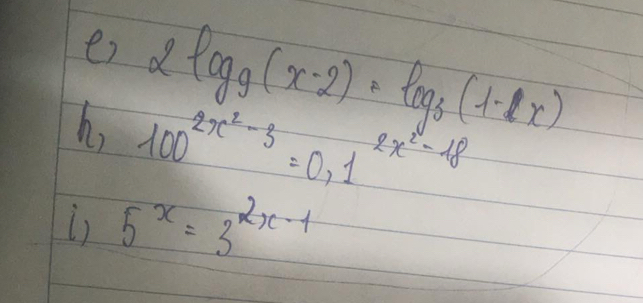 e, 2 log₉(x-2) = log₃(1-x)
h, 100^(2x²-3) = 0,1^(2x²-18)
i, 5^x = 3^(2x-1)